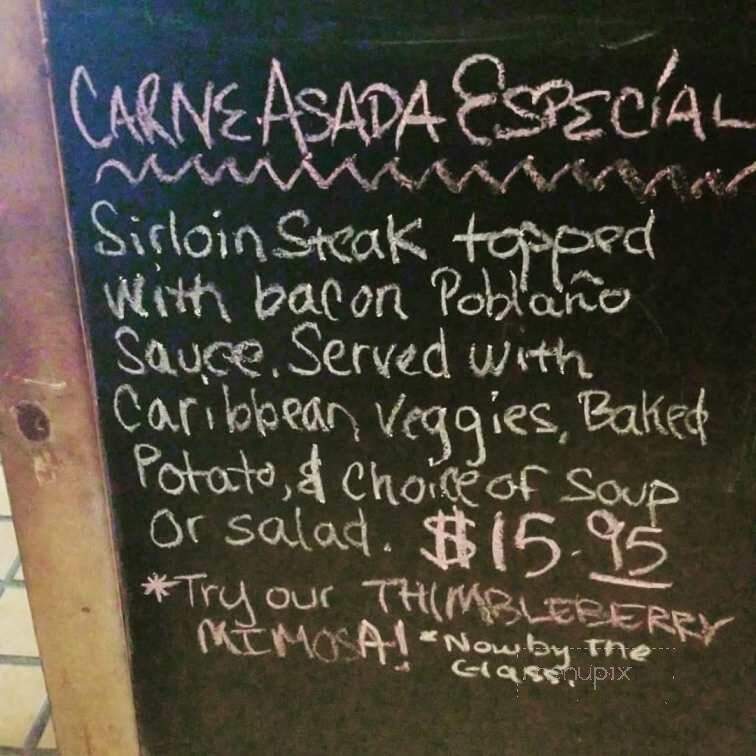 CARNE ASADA ESPECÍAL
Sirloin Steak topped
with bacon Poblaño
Sauce. Served with
Caribbean veggies, Baked
Potato, & choice of soup
or salad. $15.95
*Try our THIMBLEBERRY
MIMOSA! *Now by The
Glass.
menupix